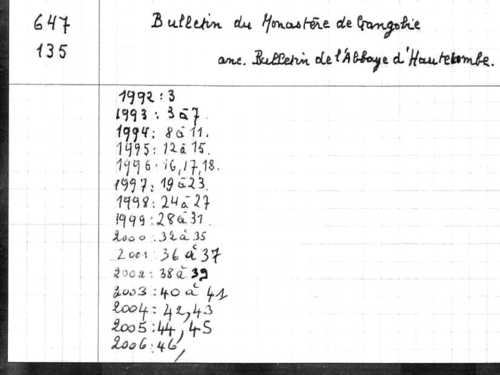 647
135
Bulletin du Monastère de Ganagobie
anc. Bulletin de l'Abbaye d'Hautecombe.
1992 : 3
1993 : 3 à 7
1994 : 8 à 11.
1995 : 12 à 15.
1996 : 16, 17, 18.
1997 : 19 à 23.
1998 : 24 à 27
1999 : 28 à 31
2000 : 32 à 35
2001 : 36 à 37
2002 : 38 à 39
2003 : 40 à 41
2004 : 42, 43
2005 : 44, 45
2006 : 46,